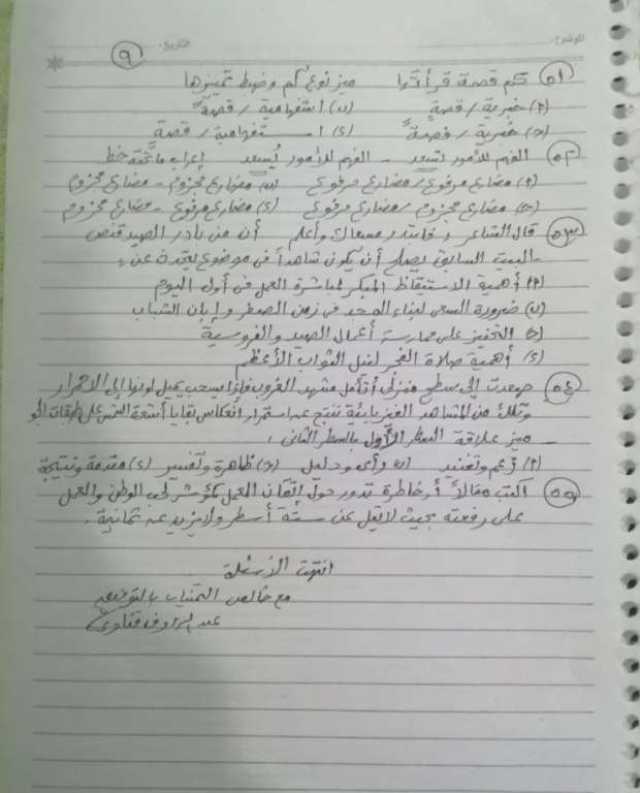 الموضوع: التاريخ:
٩
٥١ كم قصة قرأتها ميز نوع كم وضبط تمييزها
(أ) خبرية / قصةٍ (ب) استفهامية / قصةً
(ج) خبرية / قصةً (د) استفهامية / قصة
٥٢ افهم الأمور تسعد - افهم الأمور تسعد إعراب ما تحته خط
(أ) مضارع مرفوع / مضارع مرفوع (ب) مضارع مجزوم - مضارع مجزوم
(ج) مضارع مجزوم / مضارع مرفوع (د) مضارع مرفوع - مضارع مجزوم
٥٣ قال الشاعر فابتدر مسعاك واعلم أن من بادر الصيد قنص
البيت السابق يصلح أن يكون شاهداً في موضوع يتحدث عن :
(أ) أهمية الاستيقاظ المبكر لمباشرة العمل في أول اليوم
(ب) ضرورة السعي لبناء المجد في زمن الصغر وإبان الشباب
(ج) التحفيز على ممارسة أعمال الصيد والفروسية
(د) أهمية صلاة الفجر لنيل الثواب الأعظم
٥٤ صعدت إلى سطح منزلي أتأمل مشهد الغروب فإذا سحب يميل لونها إلى الاحمرار
وتلك من المشاهد الفيزيائية تنتج عن استمرار انعكاس بقايا أشعة الشمس على طبقات الجو
ميز علاقة السطر الأول بالسطر الثاني :
(أ) زعم وتفنيد (ب) رأي ودليل (ج) ظاهرة وتفسير (د) مقدمة ونتيجة
٥٥ اكتب مقالاً أو خاطرة تدور حول إتقان العمل كمؤشر لحب الوطن والعمل
على رفعته بحيث لا يقل عن ستة أسطر ولا يزيد عن ثمانية .
انتهت الأسئلة
مع خالص التمنيات بالتوفيق
عبد الرؤوف